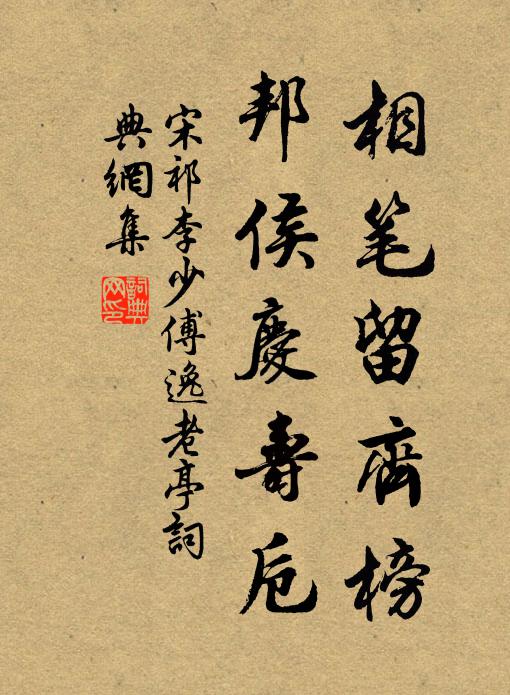 相笔留齋榜
邦侯慶壽卮
宋祁李少傅逸老亭詞
典網集
詞典
网印